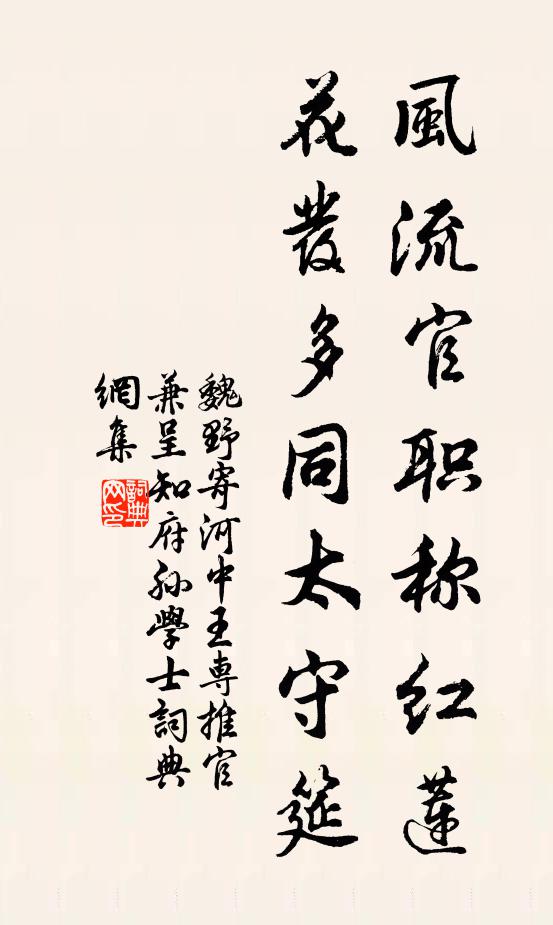 風流官职称红蓮
花發多同太守筵
魏野寄河中王專推官
兼呈知府孙學士詞典
網集
詞典
网印